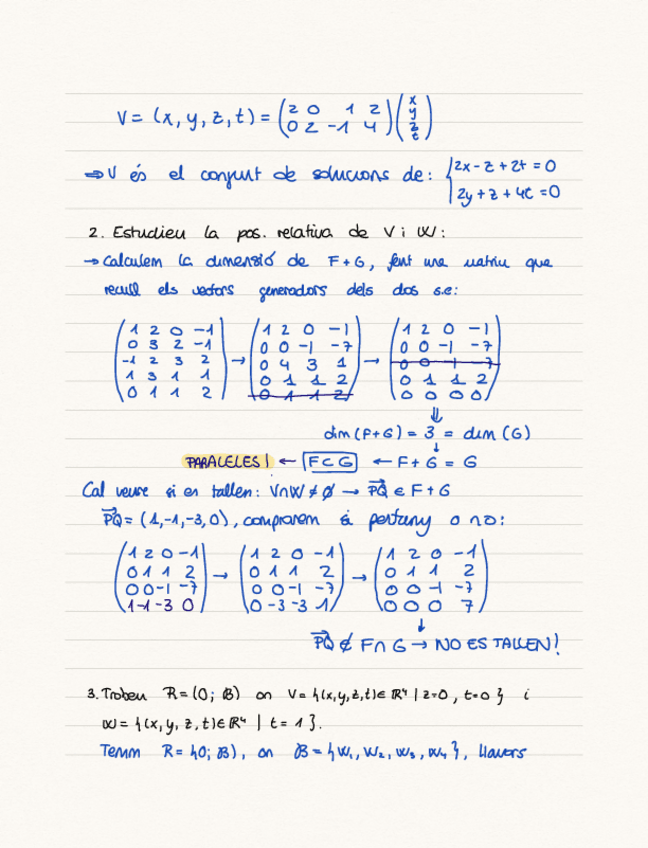 V = (x, y, z, t) = (2 0 1 2
0 2 -1 4) (x
y
z
t)
⇒ V és el conjunt de solucions de: { 2x - z + 2t = 0
2y + z + 4t = 0
2. Estudieu la pos. relativa de V i W:
→ Calculem la dimensió de F+G, fent una matriu que
recull els vectors generadors dels dos s.e:
(1 2 0 -1) → (1 2 0 -1) → (1 2 0 -1)
(0 3 2 -1) (0 0 -1 -7) (0 0 -1 -7)
(-1 2 3 2) (0 4 3 1) (0 0 -1 -7)
(1 3 1 1) (0 1 1 2) (0 1 1 2)
(0 1 1 2) (0 1 1 2) (0 0 0 0)
⇓
dim (F+G) = 3 = dim (G)
↓
PARALELES! ← F⊂G ← F+G = G
Cal veure si es tallen: V∩W ≠ ∅ → PQ ∈ F+G
PQ = (1,-1,-3,0), comprovem si pertany o no:
(1 2 0 -1) → (1 2 0 -1) → (1 2 0 -1)
(0 1 1 2) (0 1 1 2) (0 1 1 2)
(0 0 -1 -7) (0 0 -1 -7) (0 0 -1 -7)
(1 -1 -3 0) (0 -3 -3 1) (0 0 0 7)
↓
PQ ∉ F∩G → NO ES TALLEN!
3. Troben R = (O; B) on V = {(x,y,z,t) ∈ ℝ⁴ | z=0, t=0} i
W = {(x, y, z, t) ∈ ℝ⁴ | t = 1}.
Tenim R = {O; B), on B = {w₁, w₂, w₃, w₄}, llavors